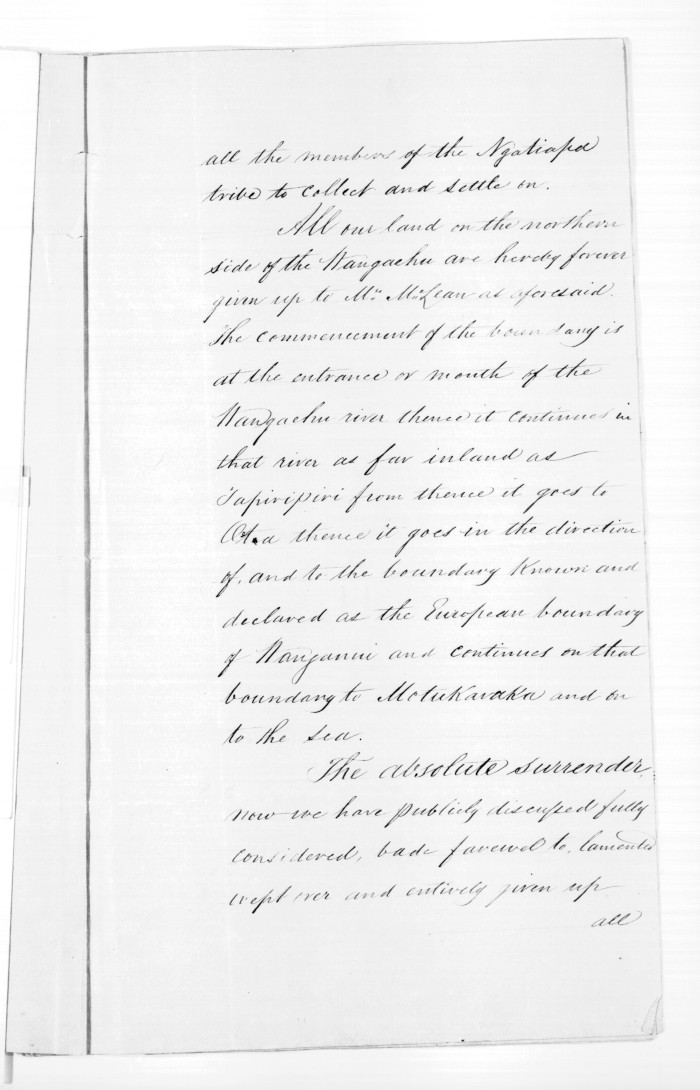 all the members of the Ngatiapa
tribe to collect and settle on.
All our land on the northern
side of the Wangaehu are hereby forever
given up to Mr. McLean as aforesaid.
The commencement of the boundary is
at the entrance or mouth of the
Wangaehu river thence it continues in
that river as far inland as
Tapiripiri from thence it goes to
thence it goes in the direction
of, and to the boundary Known and
declared as the European boundary
of Wanganui and continues on that
boundary to Motukaraka and on
to the sea.
The absolute surrender
now we have publicly discussed fully
considered, bade farewel to, lamented
wept over and entirely given up
all